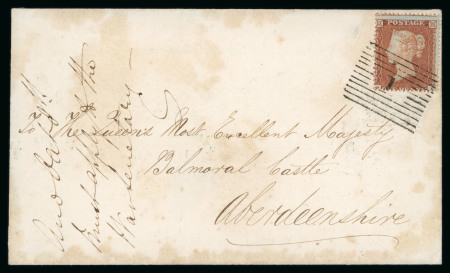 POSTAGE
To The Queens Most Excellent Majesty
Balmoral Castle
Aberdeenshire
must apply to the